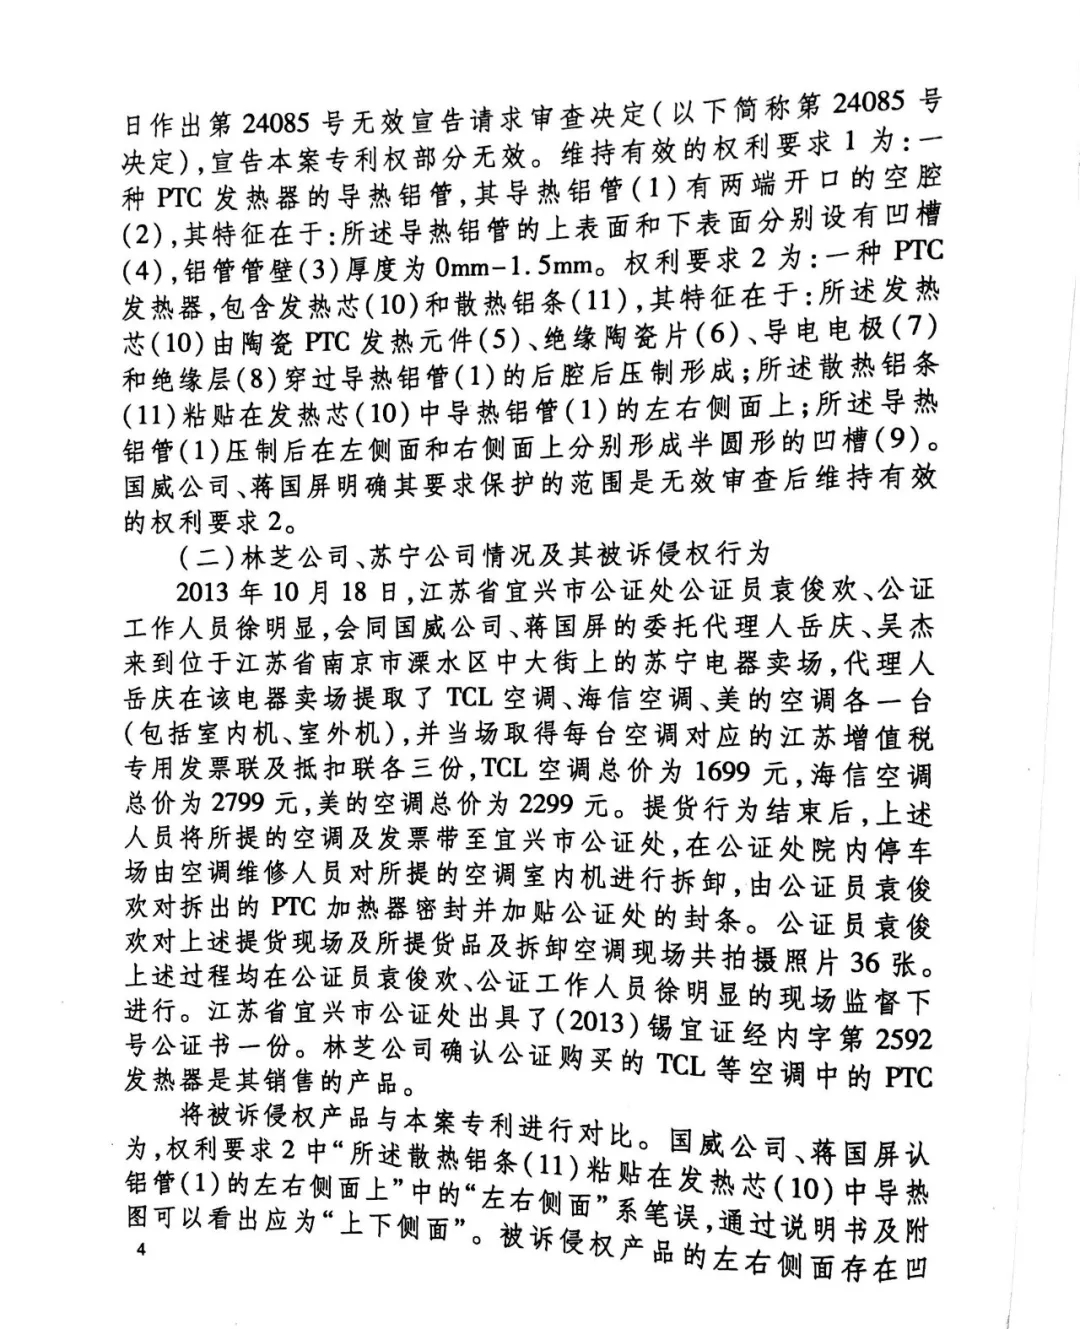 日作出第 24085 号无效宣告请求审查决定(以下简称第 24085 号
决定),宣告本案专利权部分无效。维持有效的权利要求 1 为:一
种 PTC 发热器的导热铝管,其导热铝管(1)有两端开口的空腔
(2),其特征在于:所述导热铝管的上表面和下表面分别设有凹槽
(4),铝管管壁(3)厚度为 0mm-1.5mm。权利要求 2 为:一种 PTC
发热器,包含发热芯(10)和散热铝条(11),其特征在于:所述发热
芯(10)由陶瓷 PTC 发热元件(5)、绝缘陶瓷片(6)、导电电极(7)
和绝缘层(8)穿过导热铝管(1)的后腔后压制形成;所述散热铝条
(11)粘贴在发热芯(10)中导热铝管(1)的左右侧面上;所述导热
铝管(1)压制后在左侧面和右侧面上分别形成半圆形的凹槽(9)。
国威公司、蒋国屏明确其要求保护的范围是无效审查后维持有效
的权利要求 2。
(二)林芝公司、苏宁公司情况及其被诉侵权行为
2013 年 10 月 18 日,江苏省宜兴市公证处公证员袁俊欢、公证
工作人员徐明显,会同国威公司、蒋国屏的委托代理人岳庆、吴杰
来到位于江苏省南京市溧水区中大街上的苏宁电器卖场,代理人
岳庆在该电器卖场提取了 TCL 空调、海信空调、美的空调各一台
(包括室内机、室外机),并当场取得每台空调对应的江苏增值税
专用发票联及抵扣联各三份,TCL 空调总价为 1699 元,海信空调
总价为 2799 元,美的空调总价为 2299 元。提货行为结束后,上述
人员将所提的空调及发票带至宜兴市公证处,在公证处院内停车
场由空调维修人员对所提的空调室内机进行拆卸,由公证员袁俊
欢对拆出的 PTC 加热器密封并加贴公证处的封条。公证员袁俊
欢对上述提货现场及所提货品及拆卸空调现场共拍摄照片 36 张。
上述过程均在公证员袁俊欢、公证工作人员徐明显的现场监督下
进行。江苏省宜兴市公证处出具了(2013)锡宜证经内字第 2592
号公证书一份。林芝公司确认公证购买的 TCL 等空调中的 PTC
发热器是其销售的产品。
将被诉侵权产品与本案专利进行对比。国威公司、蒋国屏认
为,权利要求 2 中“所述散热铝条(11)粘贴在发热芯(10)中导热
铝管(1)的左右侧面上”中的“左右侧面”系笔误,通过说明书及附
图可以看出应为“上下侧面”。被诉侵权产品的左右侧面存在凹
4